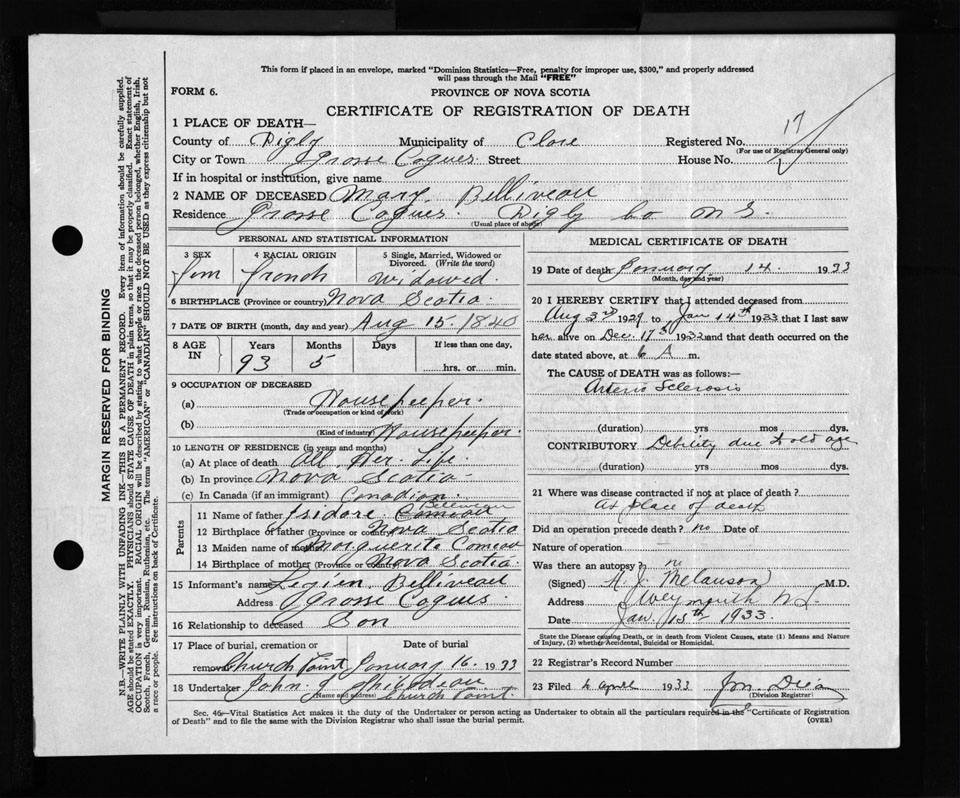 This form if placed in an envelope, marked "Dominion Statistics—Free, penalty for improper use, $300," and properly addressed
will pass through the Mail "FREE"
FORM 6.
PROVINCE OF NOVA SCOTIA
CERTIFICATE OF REGISTRATION OF DEATH
17
1 PLACE OF DEATH—
County of Digby Municipality of Clare Registered No.
(For use of Registrar General only)
City or Town Grosse Coques Street House No.
If in hospital or institution, give name
2 NAME OF DECEASED Mary Belliveau
Residence Grosse Coques Digby Co N S.
(Usual place of abode)
PERSONAL AND STATISTICAL INFORMATION
3 SEX 4 RACIAL ORIGIN 5 Single, Married, Widowed or
Divorced. (Write the word)
Fem French Widowed
6 BIRTHPLACE (Province or country) Nova Scotia
7 DATE OF BIRTH (month, day and year) Aug 15. 1840
8 AGE IN Years Months Days If less than one day,
93 5 hrs. or min.
9 OCCUPATION OF DECEASED
(a) Housekeeper.
(Trade or occupation or kind of work)
(b) Housekeeper.
(Kind of industry)
10 LENGTH OF RESIDENCE (in years and months)
(a) At place of death All Her Life
(b) In province Nova Scotia
(c) In Canada (if an immigrant) Canadian
Parents
Belliveau
11 Name of father Isidore Comeau
12 Birthplace of father (Province or country) Nova Scotia
13 Maiden name of mother Marguerite Comeau
14 Birthplace of mother (Province or country) Nova Scotia.
15 Informant's name Belliveau
Address Grosse Coques.
16 Relationship to deceased Son
17 Place of burial, cremation or Date of burial
removal Church Point January 16. 1933
18 Undertaker John Thibodeau
(Name and address) Church Point.
MEDICAL CERTIFICATE OF DEATH
19 Date of death January 14. 1933
(Month, day and year)
20 I HEREBY CERTIFY that I attended deceased from
Aug 3rd 1929 to Jan 14th 1933 that I last saw
her alive on Dec. 17th 1932 and that death occurred on the
date stated above, at 6 A m.
The CAUSE of DEATH was as follows:—
Arterio Sclerosis
(duration) yrs mos dys.
CONTRIBUTORY Debility due to old age
(duration) yrs mos dys.
21 Where was disease contracted if not at place of death?
At place of death
Did an operation precede death? no Date of
Nature of operation
Was there an autopsy? no
(Signed) Melanson M.D.
Address Weymouth N.S.
Date Jan. 15th 1933.
State the Disease causing Death, or in death from Violent Causes, state (1) Means and Nature
of Injury, (2) whether Accidental, Suicidal or Homicidal.
22 Registrar's Record Number
23 Filed 4 April 1933
(Division Registrar)
Sec. 46—Vital Statistics Act makes it the duty of the Undertaker or person acting as Undertaker to obtain all the particulars required in the "Certificate of Registration
of Death" and to file the same with the Division Registrar who shall issue the burial permit.
(OVER)
MARGIN RESERVED FOR BINDING
N.B.—WRITE PLAINLY WITH UNFADING INK—THIS IS A PERMANENT RECORD. Every item of information should be carefully supplied.
AGE should be stated EXACTLY. PHYSICIANS should STATE CAUSE OF DEATH in plain terms, so that it may be properly classified. Exact statement of
OCCUPATION is very important. RACIAL ORIGIN will be described by stating to what people or race the deceased person belonged, whether English, Irish,
Scotch, French, German, Russian, Ruthenian, etc. The terms "AMERICAN" or "CANADIAN" SHOULD NOT BE USED as they express citizenship but not
a race or people. See instructions on back of Certificate.